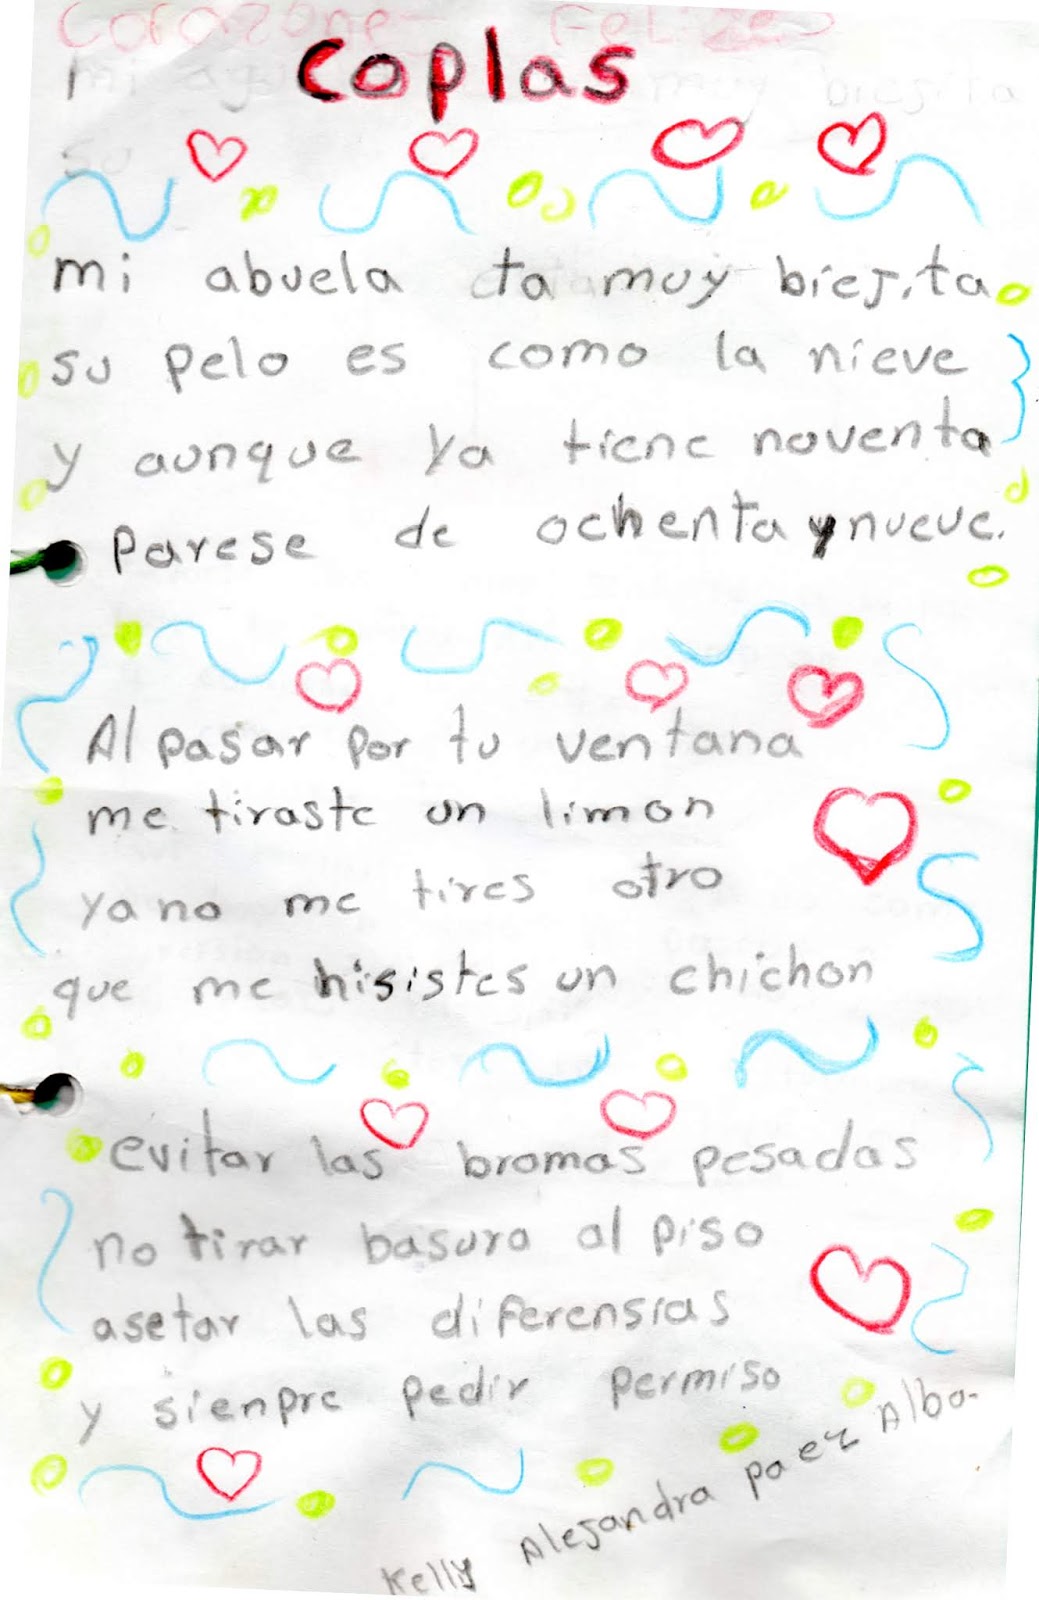 Corazone Felizes
mi muy biejita
su
Coplas
mi abuela ta muy biejita
su pelo es como la nieve
y aunque ya tiene noventa
parese de ochenta y nueve.
Al pasar por tu ventana
me tiraste un limon
ya no me tires otro
que me hisistes un chichon
evitar las bromas pesadas
no tirar basura al piso
asetar las diferensias
y sienpre pedir permiso
Kelly Alejandra paez Alba-